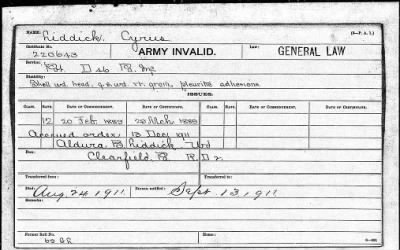 NAME: Liddick. Cyrus (3-P. A. 1.)
Certificate No. 220643 ARMY INVALID. Law: GENERAL LAW
Service:
Disability:
Shell wd. head, g.s.wd. rt. groin, pleuritic adhesions
ISSUES:
CLASS. RATE. DATE OF COMMENCEMENT. DATE OF CERTIFICATE. CLASS. RATE. DATE OF COMMENCEMENT. DATE OF CERTIFICATE.
12 20 Feb. 1889 29 Mch 1889
Accrued order 13 Dec 1911
Aldura B. Liddick Wd
Clearfield Pa R.D 2
Transferred from: Transferred to:
Died: Aug. 24 1911 Bureau notified: Sept. 13, 1911
Remarks:
Former Roll No.